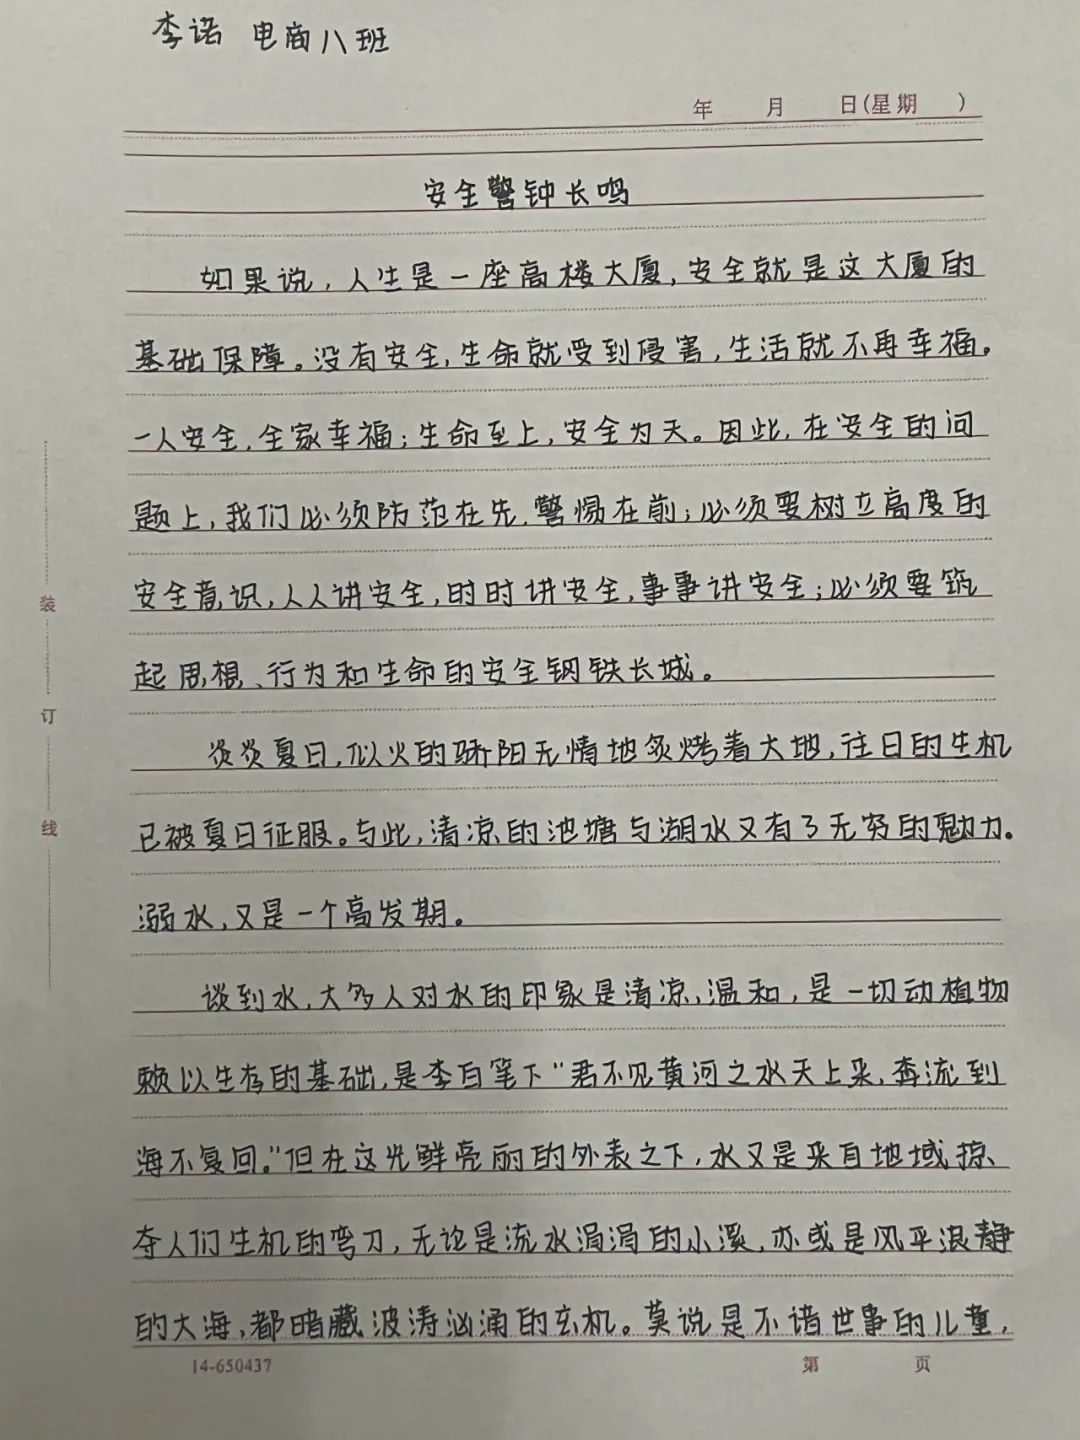 李诺 电商八班
年 月 日(星期 )
安全警钟长鸣
如果说，人生是一座高楼大厦，安全就是这大厦的
基础保障。没有安全，生命就受到侵害，生活就不再幸福。
一人安全，全家幸福；生命至上，安全为天。因此，在安全的问
题上，我们必须防范在先、警惕在前；必须要树立高度的
安全意识，人人讲安全，时时讲安全，事事讲安全；必须要筑
起思想、行为和生命的安全钢铁长城。
炎炎夏日，似火的骄阳无情地炙烤着大地，往日的生机
已被夏日征服。与此，清凉的池塘与湖水又有了无穷的魅力。
溺水，又是一个高发期。
谈到水，大多人对水的印象是清凉，温和，是一切动植物
赖以生存的基础，是李白笔下“君不见黄河之水天上来，奔流到
海不复回。”但在这光鲜亮丽的外表之下，水又是来自地域掠
夺人们生机的弯刀，无论是流水涓涓的小溪，亦或是风平浪静
的大海，都暗藏波涛汹涌的玄机。莫说是不谙世事的儿童，
14-650437 第 页
装
订
线